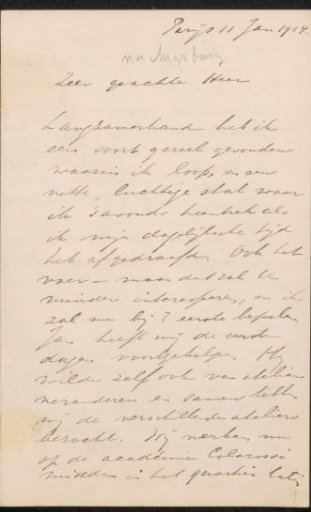 Parijs 11 Jan 1904.
Zeer geachte Heer
Langzamerhand heb ik
een soort gareel gevonden
waarin ik loop, en een
nette, luchtige stal waar
ik 's avonds heentrek als
ik mijn dagelijksche tijd
heb afgedraafd. Ook het
voer — maar dat zal U
minder interesseeren, en ik
zal me bij 't eerste bepalen.
Jan heeft mij de eerste
dagen voortgeholpen. Hij
wilde zelf ook van atelier
veranderen en samen hebben
wij de verschillende ateliers
bezocht. Wij werken nu
op de académie Colarossi
midden in het quartier latin